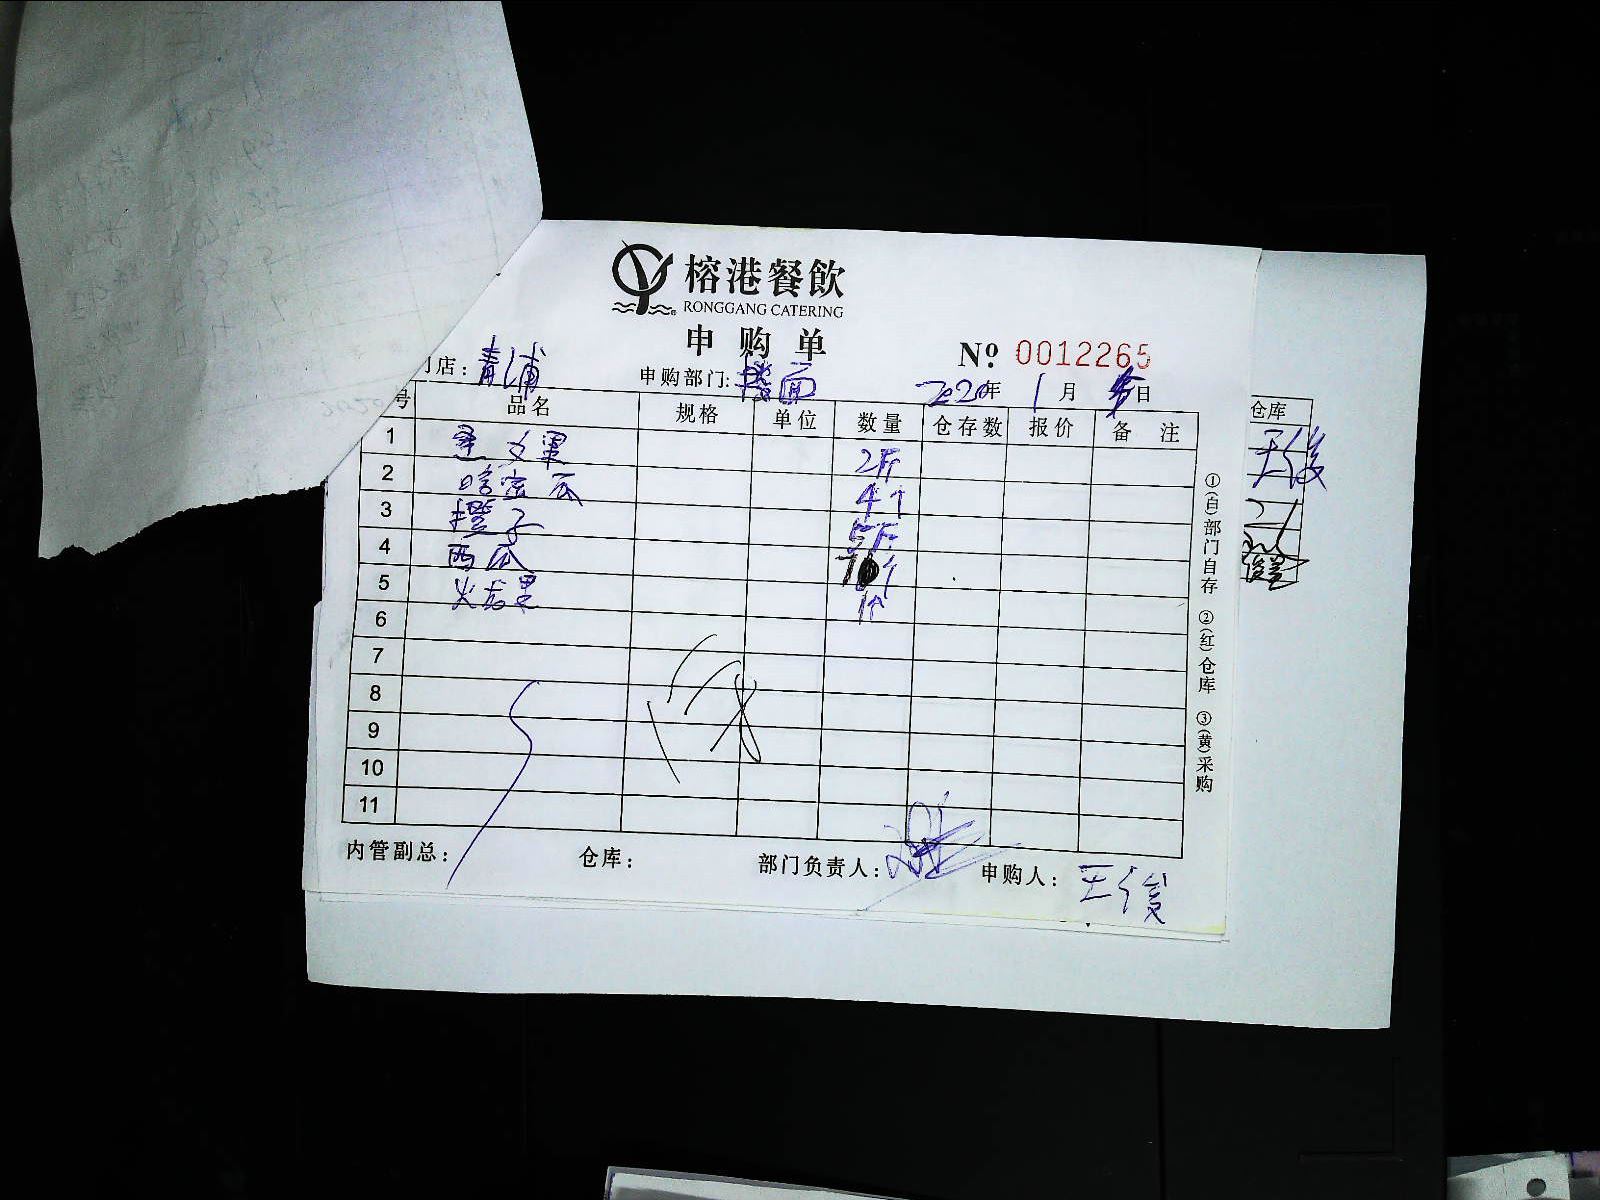 榕港餐飲
RONGGANG CATERING
申购单
门店：青浦 申购部门：楼面 2020年1月日 № 0012265
号 品名 规格 单位 数量 仓存数 报价 备注
1 圣女果 2斤
2 哈密瓜 4个
3 橙子 5斤
4 西瓜 个
5 火龙果 1个
6
7
8
9
10
11
内管副总： 仓库： 部门负责人： 申购人：王俊
①(白)部门自存 ②(红)仓库 ③(黄)采购
仓库
王俊